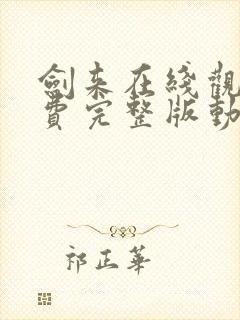 劍來在綫觀
費完整版動
祁正華